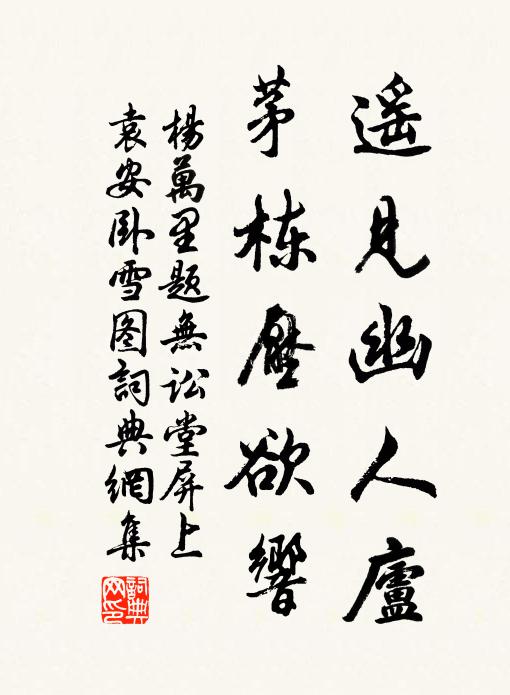 遥見幽人廬
茅栋壓欲響
楊萬里題無訟堂屏上
袁安卧雪图詞典網集
詞典網印